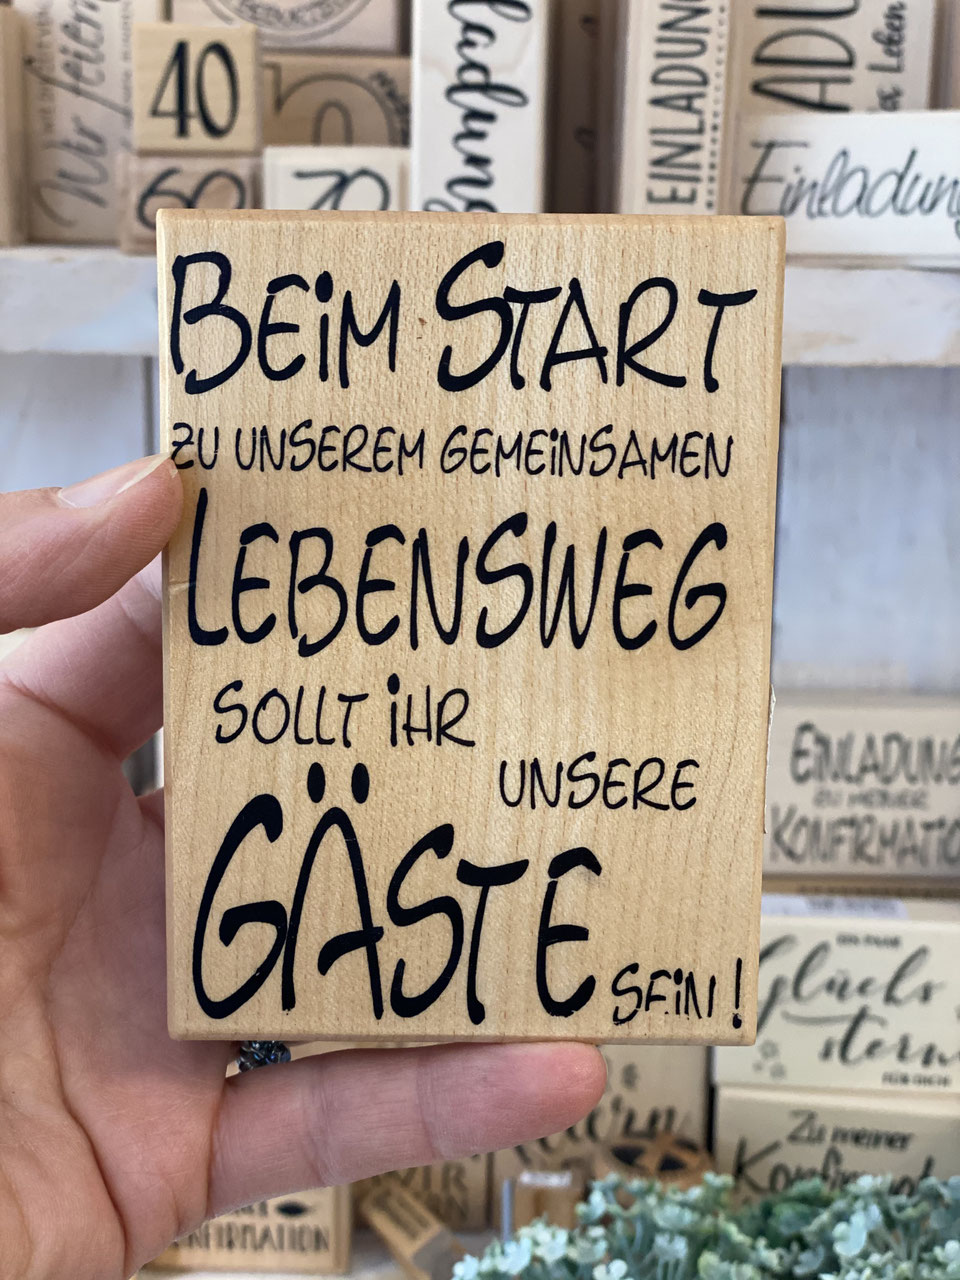 Wir feiern
40
60
70
Einladung
EINLADUNG
Einladung
BEiM START
ZU UNSEREM GEMEiNSAMEN
LEBENSWEG
SOLLT iHR
UNSERE
GÄSTE
SEiN!
EiNLADUNG
ZU MEINER
KONFiRMATiO
EIN PAAR
Glücks
stern
FÜR DICH
Zu meiner
Konfirmat
NFIRMATION